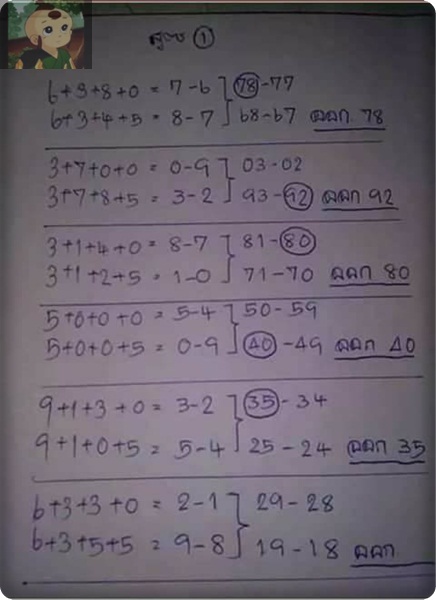 สูตร ①
6+3+8+0 = 7-6 ] 78-77
6+3+4+5 = 8-7 ] 68-67 ออก 78
3+7+0+0 = 0-9 ] 03-02
3+7+8+5 = 3-2 ] 93-92 ออก 92
3+1+4+0 = 8-7 ] 81-80
3+1+2+5 = 1-0 ] 71-70 ออก 80
5+0+0+0 = 5-4 ] 50-59
5+0+0+5 = 0-9 ] 40-49 ออก 40
9+1+3+0 = 3-2 ] 35-34
9+1+0+5 = 5-4 ] 25-24 ออก 35
6+3+3+0 = 2-1 ] 29-28
6+3+5+5 = 9-8 ] 19-18 ออก